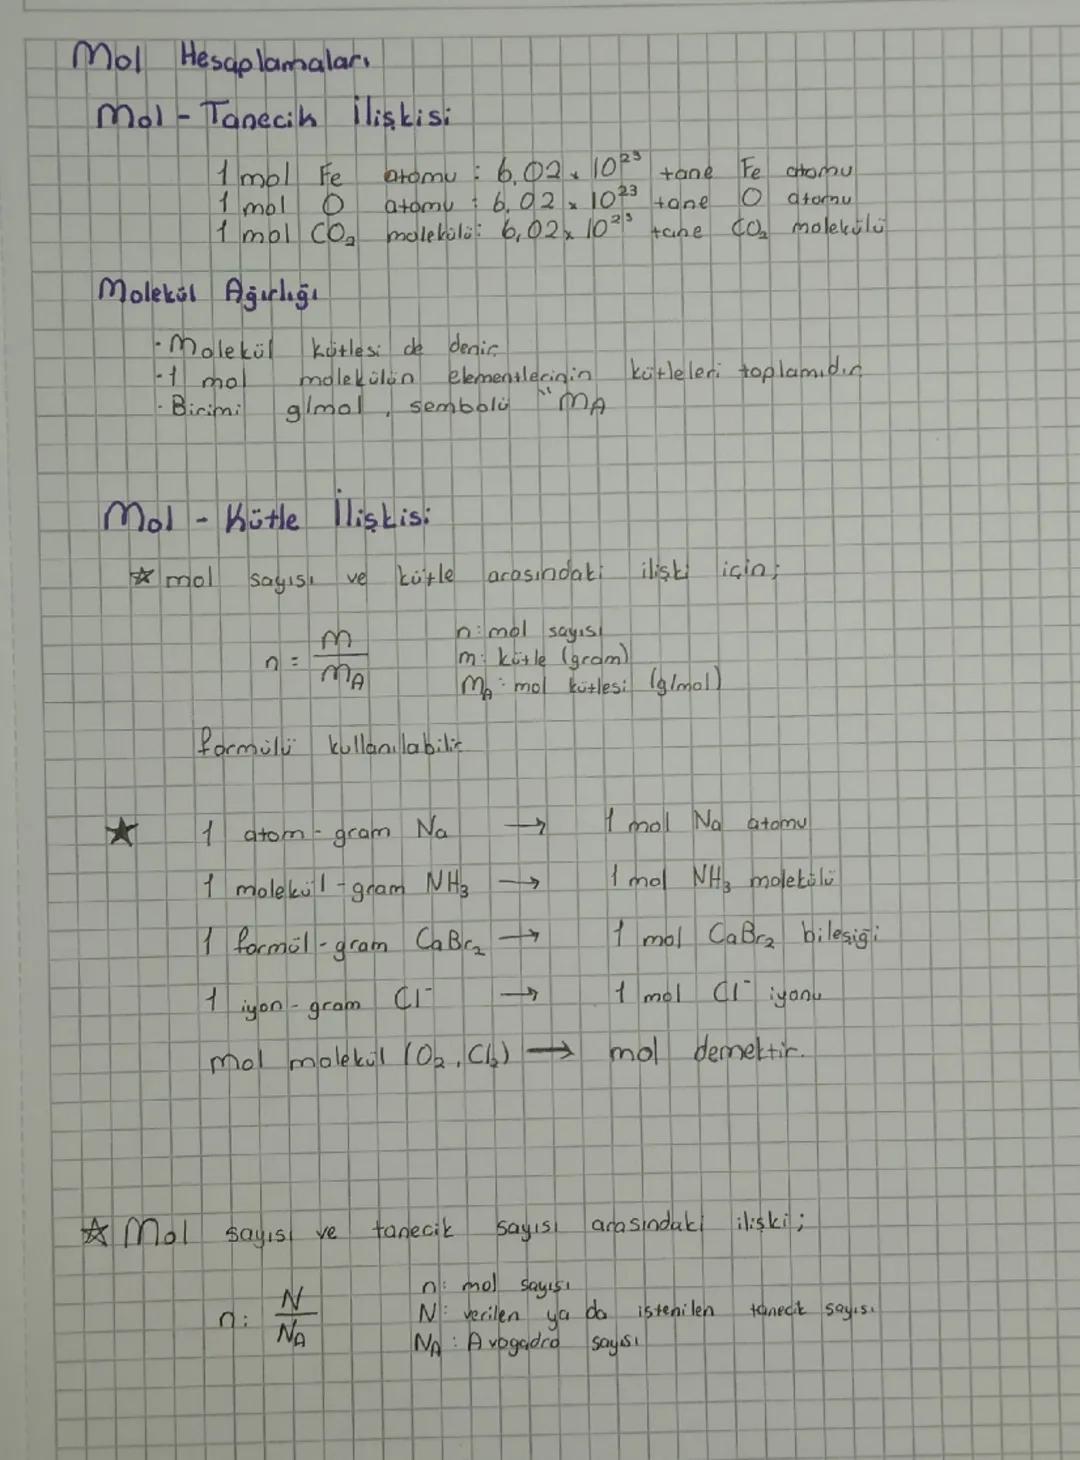 Mol Hesaplamaları
Mol - Tanecik İlişkisi
1 mol Fe atomu : 6,02 x 10²³ tane Fe atomu
1 mol O atomu : 6,02 x 10²³ tane O atomu
1 mol CO₂ molekülü : 6,02 x 10²³ tane CO₂ molekülü
Molekül Ağırlığı
· Molekül kütlesi de denir
· 1 mol molekülün elementlerinin kütleleri toplamıdır
· Birimi g/mol , sembolü " MA
Mol - Kütle İlişkisi
☆ mol sayısı ve kütle arasındaki ilişki için;
n = m / MA
n: mol sayısı
m: kütle (gram)
MA: mol kütlesi (g/mol)
formülü kullanılabilir
★ 1 atom - gram Na → 1 mol Na atomu
1 molekül - gram NH₃ → 1 mol NH₃ molekülü
1 formül - gram CaBr₂ → 1 mol CaBr₂ bileşiği
1 iyon - gram Cl⁻ → 1 mol Cl⁻ iyonu
mol molekül (O₂, Cl₂) → mol demektir.
☆ Mol sayısı ve tanecik sayısı arasındaki ilişki;
n: N / NA
n: mol sayısı
N: verilen ya da istenilen tanecik sayısı
NA: Avogadro sayısı